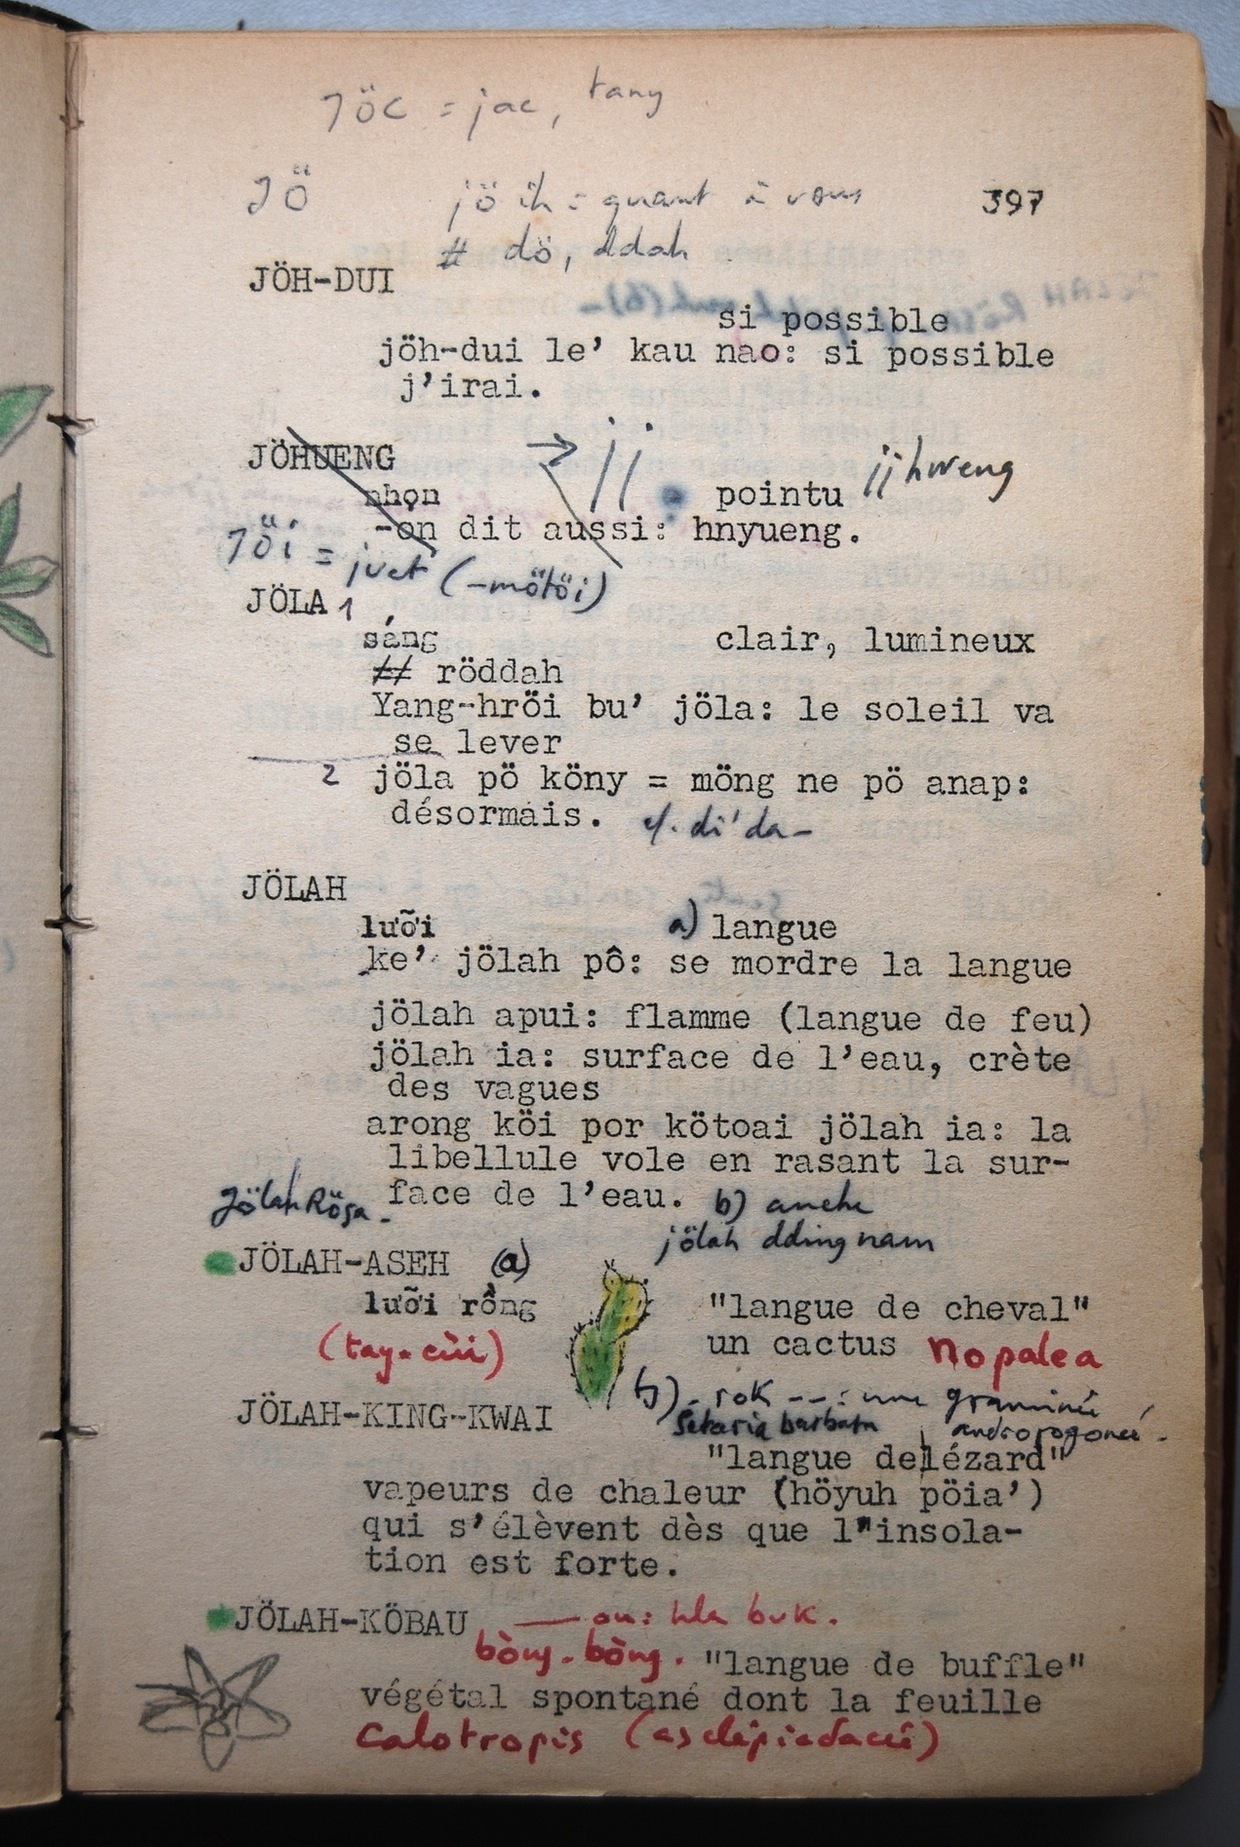 JÖC = jac, tany
JÖ jö ih = quant à vous 397
# dö, ddah
JÖH-DUI
si possible
jöh-dui le' kau nao: si possible
j'irai.
JÖHUENG → jj jjhweng
nhọn pointu
-on dit aussi: hnyueng.
JÖI = juet (-mötöi)
JÖLA 1
sáng clair, lumineux
# röddah
Yang-hröi bu' jöla: le soleil va
se lever
2 jöla pö köny = möng ne pö anap:
désormais. cf. di'da-
JÖLAH
lưỡi a) langue
ke' jölah pô: se mordre la langue
jölah apui: flamme (langue de feu)
jölah ia: surface de l'eau, crète
des vagues
arong köi por kötoai jölah ia: la
libellule vole en rasant la sur-
JölahRösa- face de l'eau. b) anche
jölah dding nam
JÖLAH-ASEH (a)
lưỡi rồng "langue de cheval"
(tay-cùi) un cactus Nopalea
b)- rok --: une graminée
JÖLAH-KING-KWAI Setaria barbata andropogoneé-
"langue de lézard"
vapeurs de chaleur (höyuh pöia')
qui s'élèvent dès que l'insola-
tion est forte.
JÖLAH-KÖBAU — ou: hla buk.
bòng-bòng. "langue de buffle"
végétal spontané dont la feuille
Calotropis (asclépiadacée)